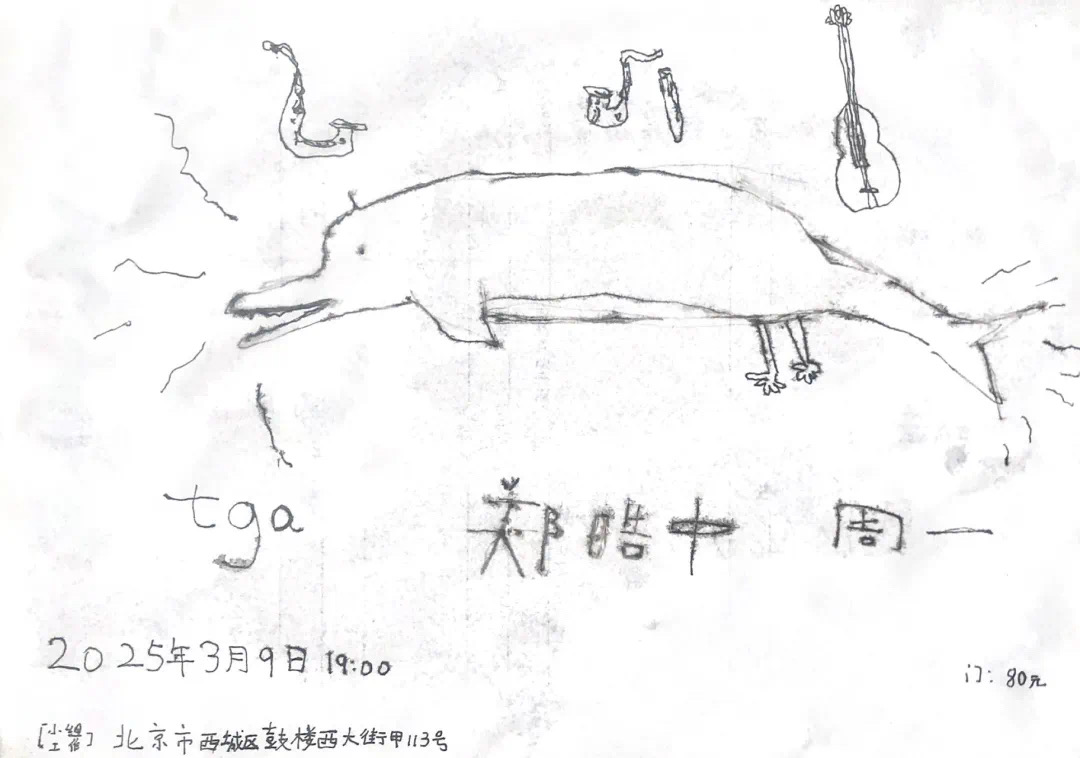 tga 郑皓中 周一
2025年3月9日 19:00
门: 80元
[小组工作] 北京市西城区鼓楼西大街甲113号